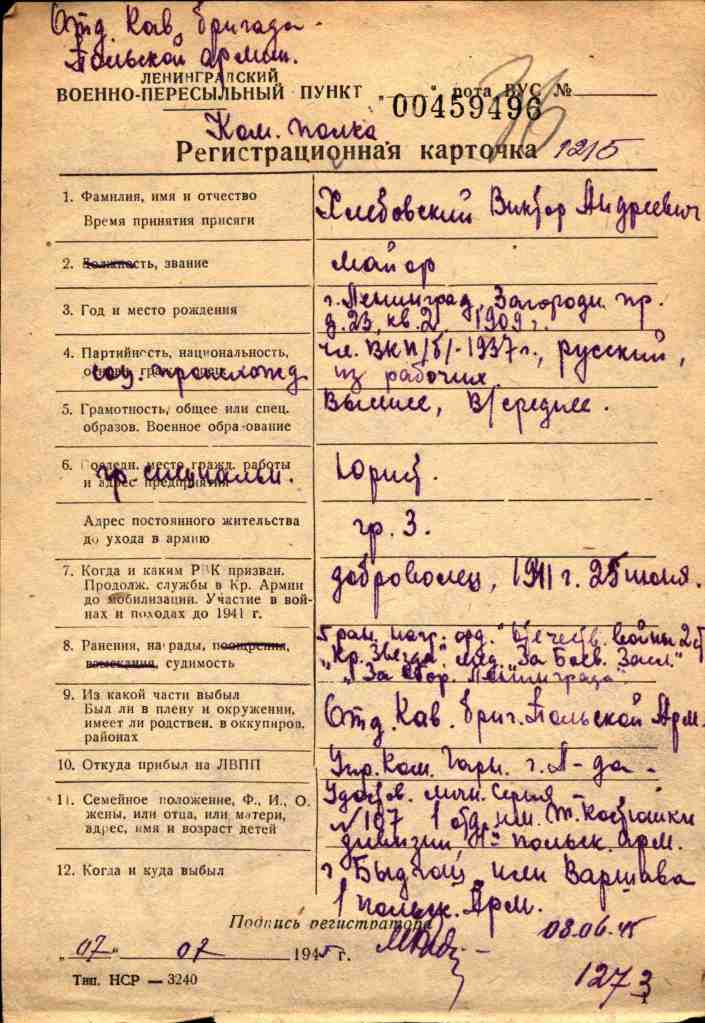 Отд. Кав. бригада
Польской армии.
ЛЕНИНГРАДСКИЙ
ВОЕННО-ПЕРЕСЫЛЬНЫЙ ПУНКТ „ “ рота ВУС №
00459496
Ком. полка
Регистрационная карточка 1215
1. Фамилия, имя и отчество
Время принятия присяги
Хлебовский Виктор Андреевич
2. Должность, звание
майор
3. Год и место рождения
г. Ленинград, Загородн. пр.
д. 23, кв. 2. 1909 г.
4. Партийность, национальность,
соц. происхожд
чл. ВКП/б/-1937 г., русский,
из рабочих.
5. Грамотность, общее или спец.
образов. Военное образование
Высшее, В/среднее.
6. Последн. место гражд. работы
и адрес предприятия
гр. специальн.
Юрист.
Адрес постоянного жительства
до ухода в армию
гр. 3.
7. Когда и каким РВК призван.
Продолж. службы в Кр. Армии
до мобилизации. Участие в вой-
нах и походах до 1941 г.
доброволец, 1941 г. 25 июля.
8. Ранения, награды, поощрения,
взыскания, судимость
5 ран. нагр. орд. "Отечеств. войны 2 ст
"Кр. Звезда", мед. "За Боев. Засл."
"За Обор. Ленинграда"
9. Из какой части выбыл
Был ли в плену и окружении,
имеет ли родствен. в оккупиров.
районах
Отд. Кав. бриг. Польской Арм.
10. Откуда прибыл на ЛВПП
Упр. Ком. Гарн. г. Л-да -
11. Семейное положение, Ф., И., О.
жены, или отца, или матери,
адрес, имя и возраст детей
Удостов. личн. Серия -
N 197 1 отд. им. Т. Костюшки
дивизии, польск. арм.
12. Когда и куда выбыл
г. Быдгощ или Варшава
1 польск. Арм.
Подпись регистратора
08.06.45
„07“ 07 1945 г.
Тип. НСР — 3240
1273